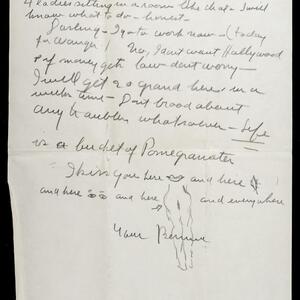 4 ladies sitting in a room like that – I won't
know what to do – honest –
Darling – I go to work now – (today
for Wanger) No, I don't want Hollywood
& if money gets low – don't worry –
I will get 20 grand here in a
winter time – Don't brood about
any troubles whatsoever – Life
is a bucket of Pomegranates
I kiss you here and here
and here and here and everywhere
Your